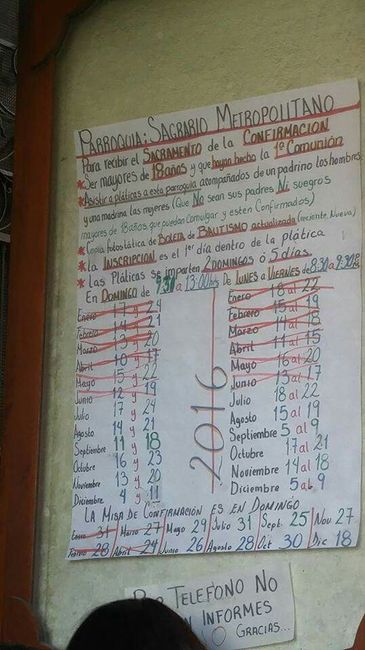 PARROQUIA: SAGRARIO METROPOLITANO
Para recibir el SACRAMENTO de la CONFIRMACION
*Ser mayores de 18 años y que hayan hecho la 1ª Comunión
*Asistir a pláticas a esta parroquia acompañados de un padrino los hombres
y una madrina las mujeres (Que No sean sus padres Ni suegros
mayores de 18 años, que puedan comulgar y esten Confirmados)
*Copia fotostática de Boleta de BAUTISMO actualizada (reciente, Nueva)
*La INSCRIPCION es el 1er día dentro de la plática
*Las Pláticas se imparten 2 DOMINGOS ó 5 días
En DOMINGO de 9:30 a 13:00hrs
Enero 17 y 24
Febrero 14 y 21
Marzo 13 y 20
Abril 10 y 17
Mayo 15 y 22
Junio 12 y 19
Julio 17 y 24
Agosto 14 y 21
Septiembre 11 y 18
Octubre 16 y 23
Noviembre 13 y 20
Diciembre 4 y 11
2016
De LUNES a VIERNES de 8:30 a 9:30
Enero 18 al 22
Febrero 15 al 19
Marzo 14 al 18
Abril 11 al 15
Mayo 16 al 20
Junio 13 al 17
Julio 18 al 22
Agosto 15 al 19
Septiembre 5 al 9
Octubre 17 al 21
Noviembre 14 al 18
Diciembre 5 al 9
LA MISA DE CONFIRMACIÓN ES EN DOMINGO
Enero 31 Marzo 27 Mayo 29 Julio 31 Sept 25 Nov 27
Febrero 28 Abril 24 Junio 26 Agosto 28 Oct 30 Dic 18
POR TELEFONO NO
INFORMES
GRACIAS...